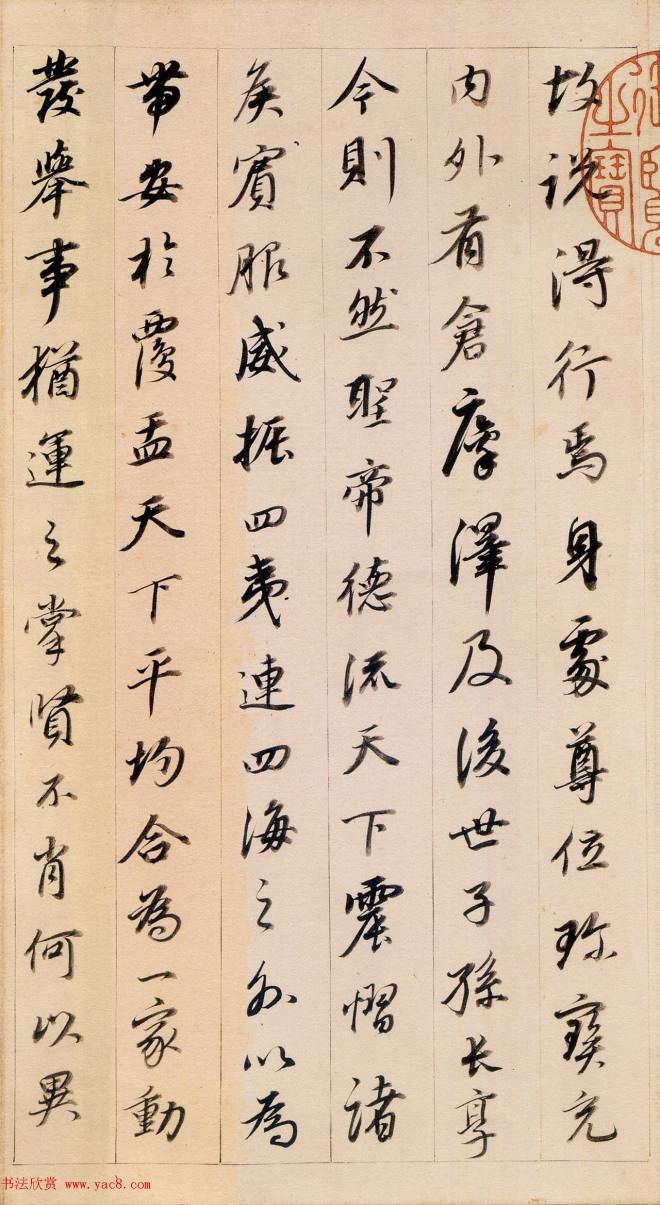 故說得行焉身處尊位珍寶充
内外有倉廩澤及後世子孫長享
今則不然聖帝德流天下震慴諸
侯賓服威振四夷連四海之外以為
帶安於覆盂天下平均合為一家動
發舉事猶運之掌賢不肖何以異
之寶
书法欣赏 www.yac8.com